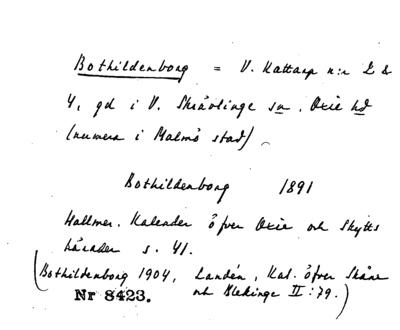 Bothildenborg = V. Kattarp n:r 2 &
4, gd i V. Skrävlinge sn, Oxie hd
(numera i Malmö stad)
Bothildenborg 1891
Hallmer. Kalender öfver Oxie och Skytts
härader s. 41.
(Bothildenborg 1904, Landén, Kal. öfver Skåne
Nr 8423. och Blekinge II:79.)